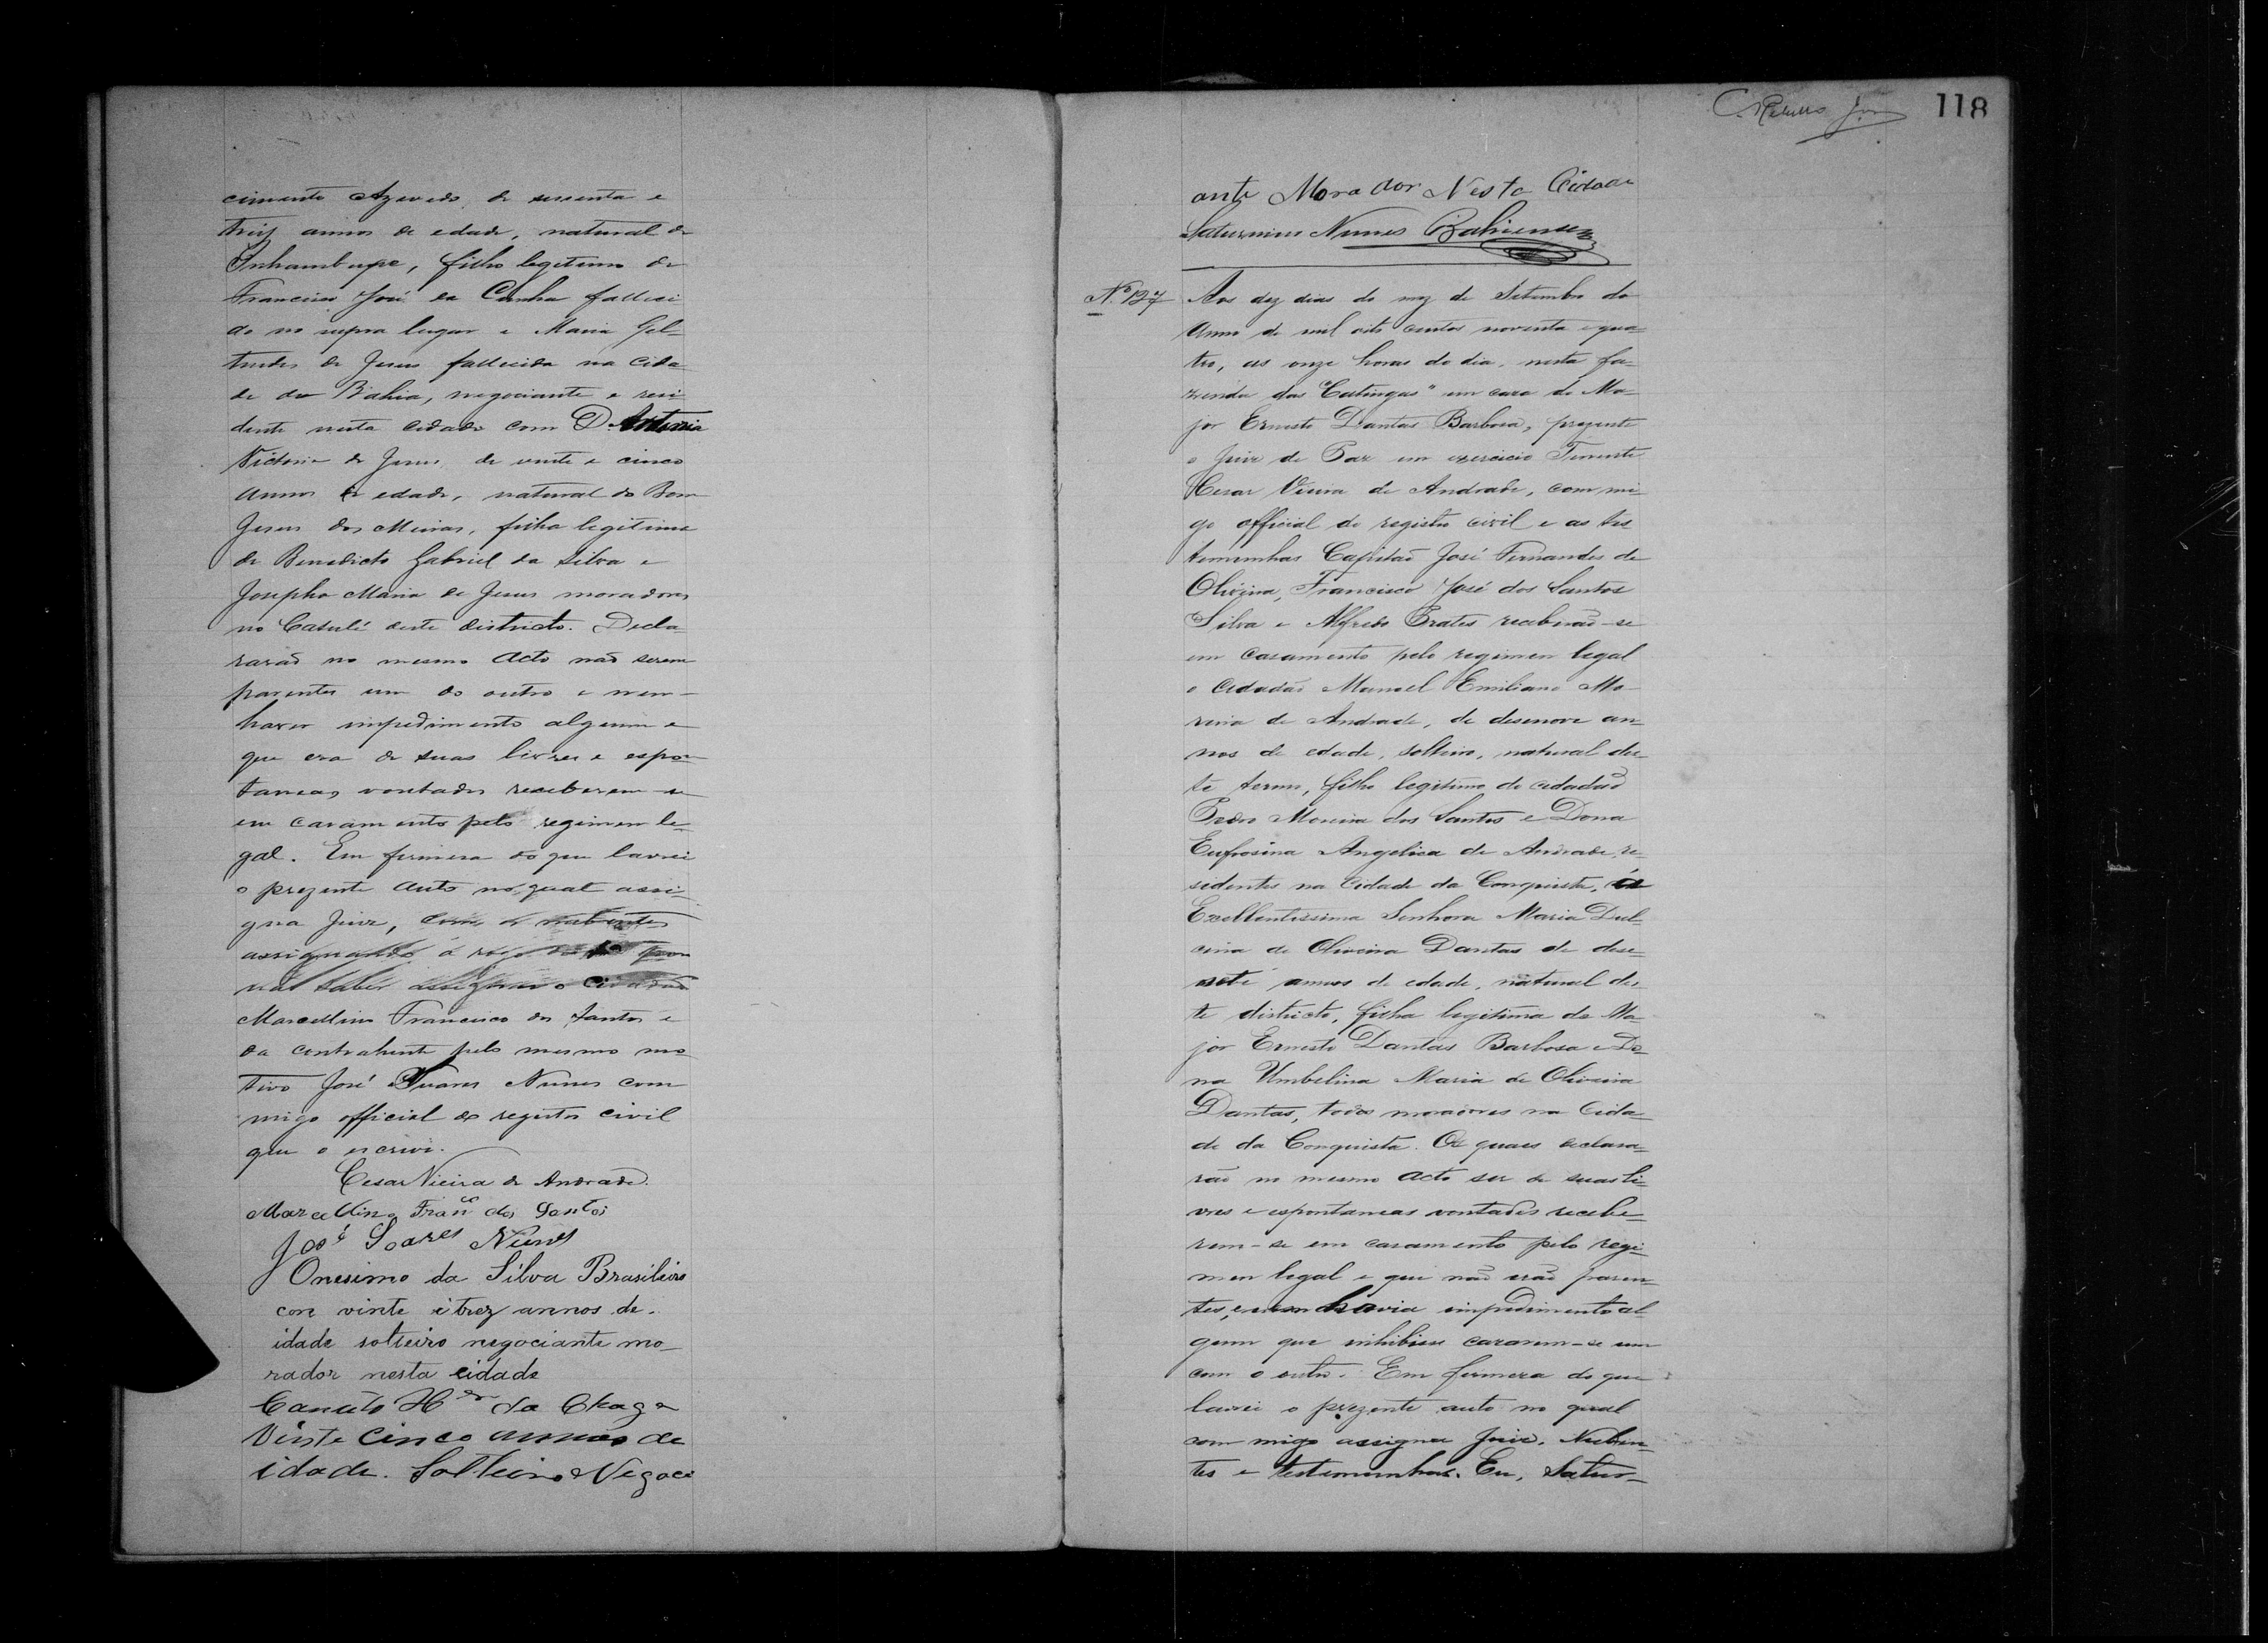 cimento Azevedo, de sessenta e
trêis annos de edade, natural de
Inhambupe, filho legitimo de
Francisco José da Cunha falleci
do no supra lugar e Maria Gel-
trudes de Jesus fallecida na Cida
de da Bahia, negociante e resi-
dente nesta cidade com D. Antonia
Victoria de Jesus, de vinte e cinco
annos de edade, natural do Bom
Jesus dos Meiras, filha legitima
de Benedicto Gabriel da Silva e
Josepha Maria de Jesus moradores
no Catulé deste districto. Decla-
raraõ no mesmo acto naõ serem
parentes um do outro e nem-
haver impedimento algum e
que era de suas livres e espon-
taneas vontades receberem-se
em casamento pelo regimen le-
gal. Em firmesa do que lavrei
o prezente auto no qual assi-
gna Juiz, com os nubentes
assignando á rogo
naõ saber o Cidadaõ
Marcellino Francisco dos Santos e
da contrahente pelo mesmo mo
tivo José Soares Nunes com
migo official do registro civil
que o escrivi.
Cesar Vieira de Andrade.
Marcellino Franco dos Santos
José Soares Nunes
Onesimo da Silva Brasileiro
com vinte i trez annos de
idade solteiro negociante mo-
rador nesta cidade
Canuto da Chaga
Vinte Cinco annos de
idade. Solteiro Negoci
118
ante Morador Nesta Cidade
Saturnino Nunes Bahiense
No 127
Aos dez dias do mez de Setembro do
anno de mil oito centos noventa e qua-
tro, as onze horas do dia, nesta fa-
zenda das "Catingas" em casa do Ma-
jor Ernesto Dantas Barbosa, prezente
o Juiz de Paz em exercicio Tenente
Cesar Vieira de Andrade, com mi-
go official do registro civil e as tes
temunhas Capitaõ José Fernandes de
Oliveira, Francisco José dos Santos
Silva e Alfredo Prates receberaõ-se
em casamento pelo regimen legal
o Cidadaõ Manoel Emiliano Mo-
reira de Andrade, de desenove an-
nos de edade, solteiro, natural des-
te termo, filho legitimo do cidadaõ
Pedro Moreira dos Santos e Dona
Eufrosina Angelica de Andrade, re-
sedentes na Cidade da Conquista, á
Excellentissima Senhora Maria Dul-
cina de Oliveira Dantas de dese-
sete annos de edade, natural des-
te districto, filha legitima do Ma-
jor Ernesto Dantas Barbosa e Do-
na Umbelina Maria de Oliveira
Dantas, todos moradores na Cida-
de da Conquista. Os quaes declara-
raõ no mesmo acto ser de suas li-
vres e espontaneas vontades recebe-
rem-se em casamento pelo regi-
men legal e que naõ eraõ paren-
tes, e nem havia impedimento al-
gum que inhibisse casarem-se um
com o outro. Em firmeza do que
lavrei o prezente auto no qual
com migo assigna Juiz, Nuben-
tes e testemunhas. Eu, Satur-